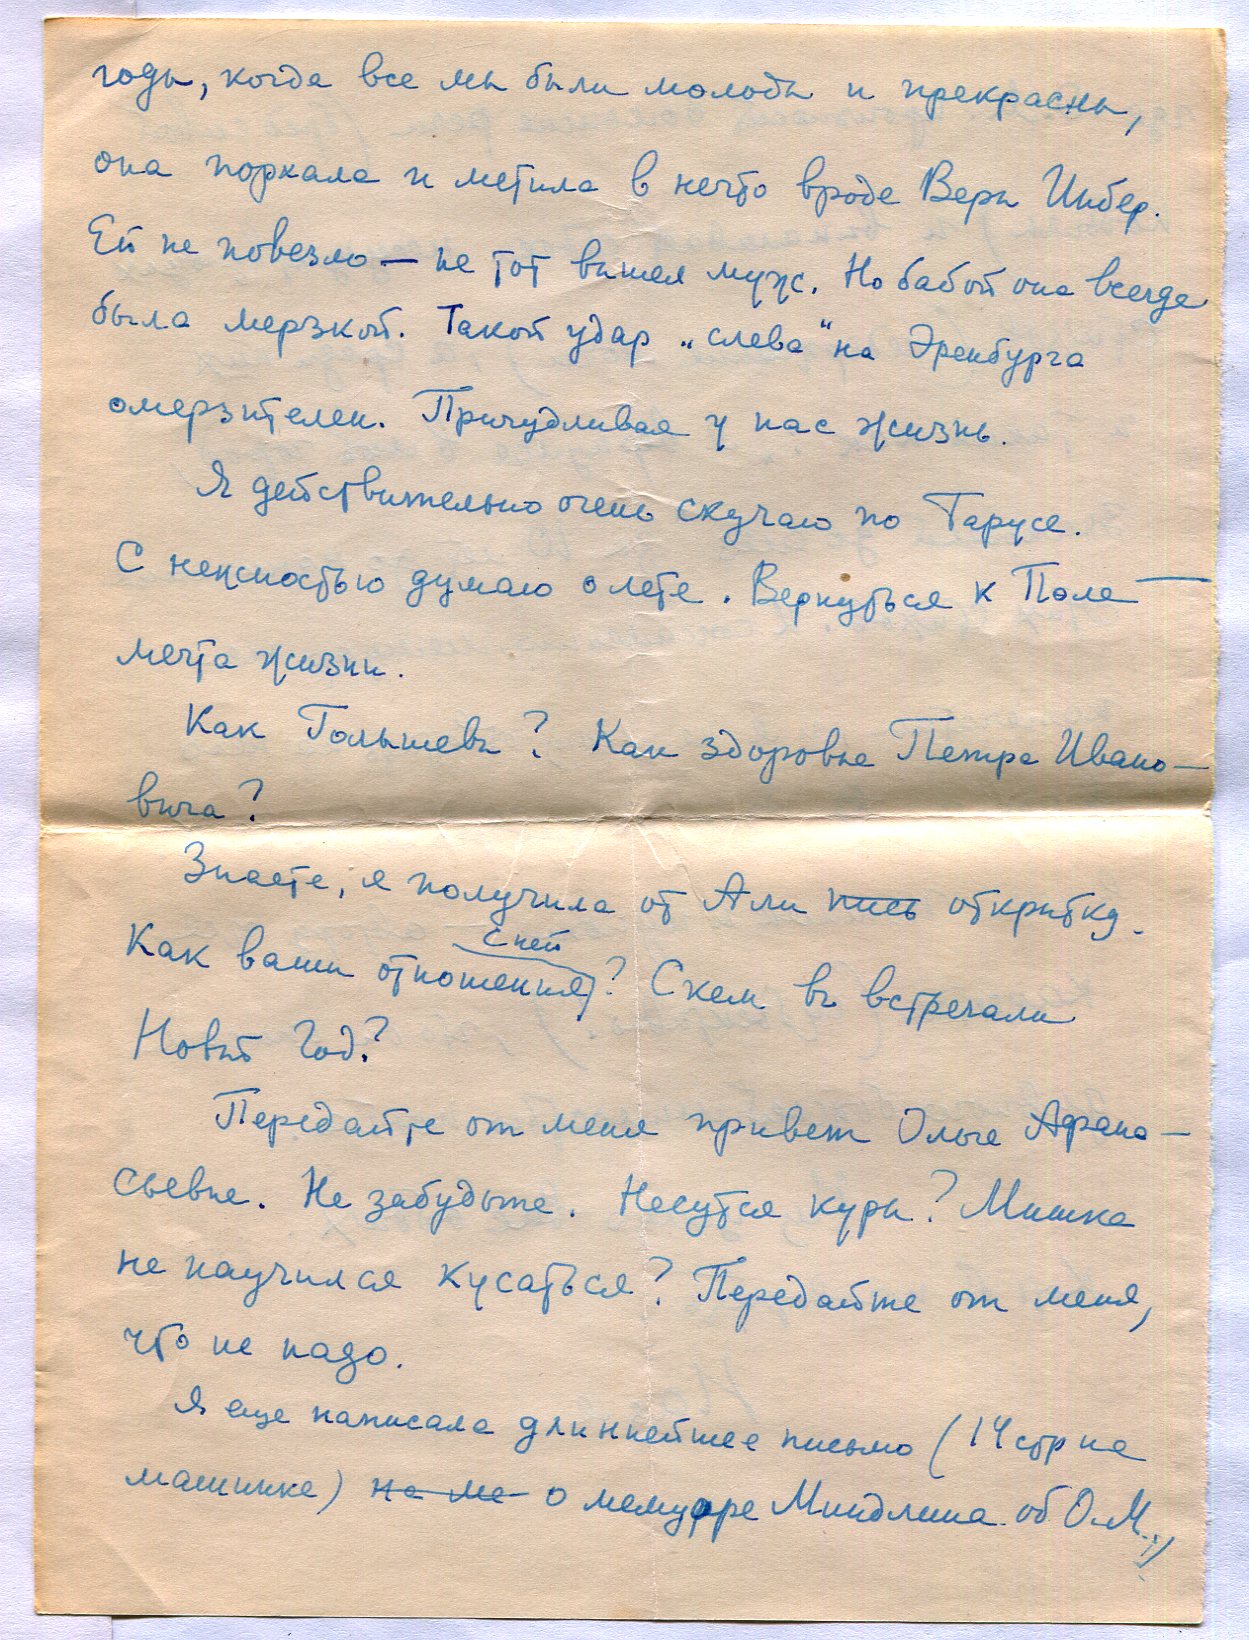 годы, когда все мы были молоды и прекрасны,
она порхала и метила в нечто вроде Веры Инбер.
Ей не повезло — не тот вышел муж. Но бабой она всегда
была мерзкой. Такой удар „слева“ на Эренбурга
омерзителен. Причудливая у нас жизнь.
Я действительно очень скучаю по Тарусе.
С нежностью думаю о лете. Вернуться к Поле —
мечта жизни.
Как Голышевы? Как здоровье Петра Ивано-
вича?
Знаете, я получила от Али пись открытку.
с ней
Как ваши отношения? С кем вы встречали
Новый Год?
Передайте от меня привет Ольге Афана-
сьевне. Не забудьте. Несутся куры? Мишка
не научился кусаться? Передайте от меня,
что не надо.
Я еще написала длиннейшее письмо (14 стр на
машинке) на ме о мемуаре Миндлина об О.М.,